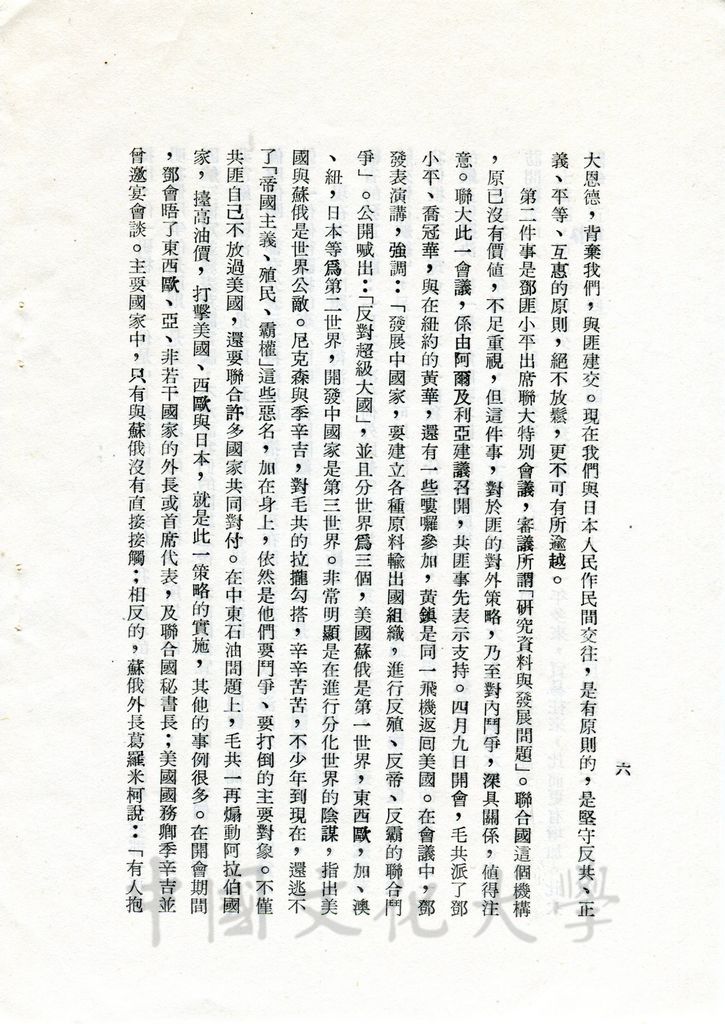 大恩德，背棄我們，與匪建交。現在我們與日本人民作民間交往，是有原則的，是堅守反共、正
義、平等、互惠的原則，絕不放鬆，更不可有所逾越。
第二件事是鄧匪小平出席聯大特別會議，審議所謂「研究資料與發展問題」。聯合國這個機構
，原已沒有價值，不足重視，但這件事，對於匪的對外策略，乃至對內鬥爭，深具關係，值得注
意。聯大此一會議，係由阿爾及利亞建議召開，共匪事先表示支持。四月九日開會，毛共派了鄧
小平、喬冠華，與在紐約的黃華，還有一些嘍囉參加，黃鎮是同一飛機返回美國。在會議中，鄧
發表演講，強調：「發展中國家，要建立各種原料輸出國組織，進行反殖、反帝、反霸的聯合鬥
爭」。公開喊出：「反對超級大國」，並且分世界爲三個，美國蘇俄是第一世界，東西歐，加、澳
、紐，日本等爲第二世界，開發中國家是第三世界。非常明顯是在進行分化世界的陰謀，指出美
國與蘇俄是世界公敵。尼克森與季辛吉，對毛共的拉攏勾搭，辛辛苦苦，不少年到現在，還逃不
了「帝國主義、殖民、霸權」這些惡名，加在身上，依然是他們要鬥爭、要打倒的主要對象。不僅
共匪自己不放過美國，還要聯合許多國家共同對付。在中東石油問題上，毛共一再煽動阿拉伯國
家，擡高油價，打擊美國、西歐與日本，就是此一策略的實施，其他的事例很多。在開會期間
，鄧會晤了東西歐、亞、非若干國家的外長或首席代表，及聯合國秘書長；美國國務卿季辛吉並
曾邀宴會談。主要國家中，只有與蘇俄沒有直接接觸；相反的，蘇俄外長葛羅米柯說：「有人抱
六
中國文化大學